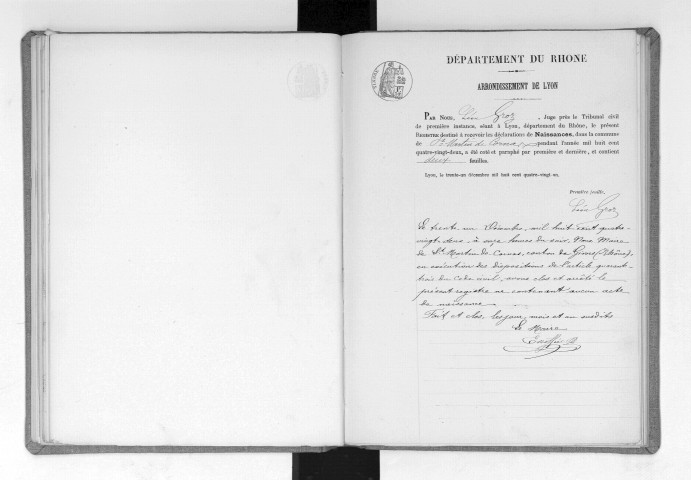 DÉPARTEMENT DU RHONE
ARRONDISSEMENT DE LYON
PAR NOUS, Léon Groz, Juge près le Tribunal civil
de première instance, séant à Lyon, département du Rhône, le présent
REGISTRE destiné à recevoir les déclarations de Naissances, dans la commune
de St Martin de Cornas pendant l'année mil huit cent
quatre-vingt-deux, a été coté et paraphé par première et dernière, et contient
deux feuilles.
Lyon, le trente-un décembre mil huit cent quatre-vingt-un.
Première feuille,
Léon Groz
Le trente un Décembre, mil huit cent quatre-
vingt-deux à onze heures du soir, Nous Maire
de St Martin de Cornas, canton de Givors (Rhône),
en exécution des dispositions de l'article quarante
trois du code civil, avons clos et arrêté le
présent registre ne contenant aucun acte
de naissance
Fait et clos, les jour, mois et an susdits
Le Maire